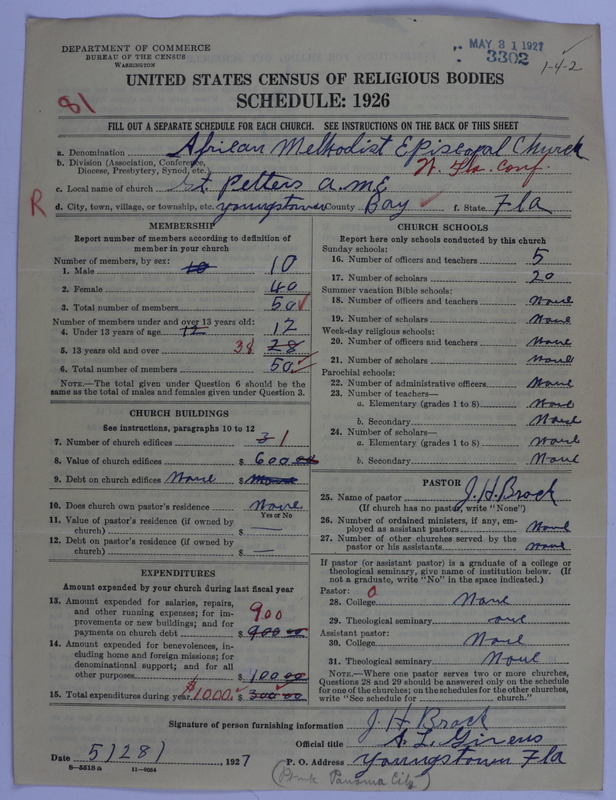 DEPARTMENT OF COMMERCE
BUREAU OF THE CENSUS
WASHINGTON
MAY 31 1927
3302
1-4-2
UNITED STATES CENSUS OF RELIGIOUS BODIES
SCHEDULE: 1926
81
FILL OUT A SEPARATE SCHEDULE FOR EACH CHURCH. SEE INSTRUCTIONS ON THE BACK OF THIS SHEET
a. Denomination African Methodist Episcopal Church
b. Division (Association, Conference, Diocese, Presbytery, Synod, etc.) W. Fla. Conf.
c. Local name of church St. Petters A.ME
R d. City, town, village, or township, etc. Youngstown County Bay ✓ f. State Fla
MEMBERSHIP
Report number of members according to definition of
member in your church
Number of members, by sex:
1. Male 10 10
2. Female 40
3. Total number of members 50 ✓
Number of members under and over 13 years old:
4. Under 13 years of age 12 12
5. 13 years old and over 38 28
6. Total number of members 50 ✓
NOTE.—The total given under Question 6 should be the
same as the total of males and females given under Question 3.
CHURCH BUILDINGS
See instructions, paragraphs 10 to 12
7. Number of church edifices 3 1
8. Value of church edifices $ 600 00
9. Debt on church edifices None $ None
10. Does church own pastor's residence None
Yes or No
11. Value of pastor's residence (if owned by
church) $ —
12. Debt on pastor's residence (if owned by
church) $ —
EXPENDITURES
Amount expended by your church during last fiscal year
13. Amount expended for salaries, repairs,
and other running expenses; for im-
provements or new buildings; and for
payments on church debt 900 $ 900 00
14. Amount expended for benevolences, in-
cluding home and foreign missions; for
denominational support; and for all
other purposes $ 100 00
15. Total expenditures during year $1000. $ 300 00
CHURCH SCHOOLS
Report here only schools conducted by this church
Sunday schools:
16. Number of officers and teachers 5
17. Number of scholars 20
Summer vacation Bible schools:
18. Number of officers and teachers None
19. Number of scholars None
Week-day religious schools:
20. Number of officers and teachers None
21. Number of scholars None
Parochial schools:
22. Number of administrative officers None
23. Number of teachers—
a. Elementary (grades 1 to 8) None
b. Secondary None
24. Number of scholars—
a. Elementary (grades 1 to 8) None
b. Secondary None
PASTOR
25. Name of pastor J. H. Brock
(If church has no pastor, write "None")
26. Number of ordained ministers, if any, em-
ployed as assistant pastors None
27. Number of other churches served by the
pastor or his assistants None
If pastor (or assistant pastor) is a graduate of a college or
theological seminary, give name of institution below. (If
not a graduate, write "No" in the space indicated.)
Pastor: 0
28. College None
29. Theological seminary one
Assistant pastor:
30. College None
31. Theological seminary None
NOTE.—Where one pastor serves two or more churches,
Questions 28 and 29 should be answered only on the schedule
for one of the churches; on the schedules for the other churches,
write "See schedule for ______ church."
Signature of person furnishing information J. H. Brock
Official title A. L. Givens
Date 5/28/ , 1927 P. O. Address Youngstown Fla
8-5518a 11-9054
Panama City)